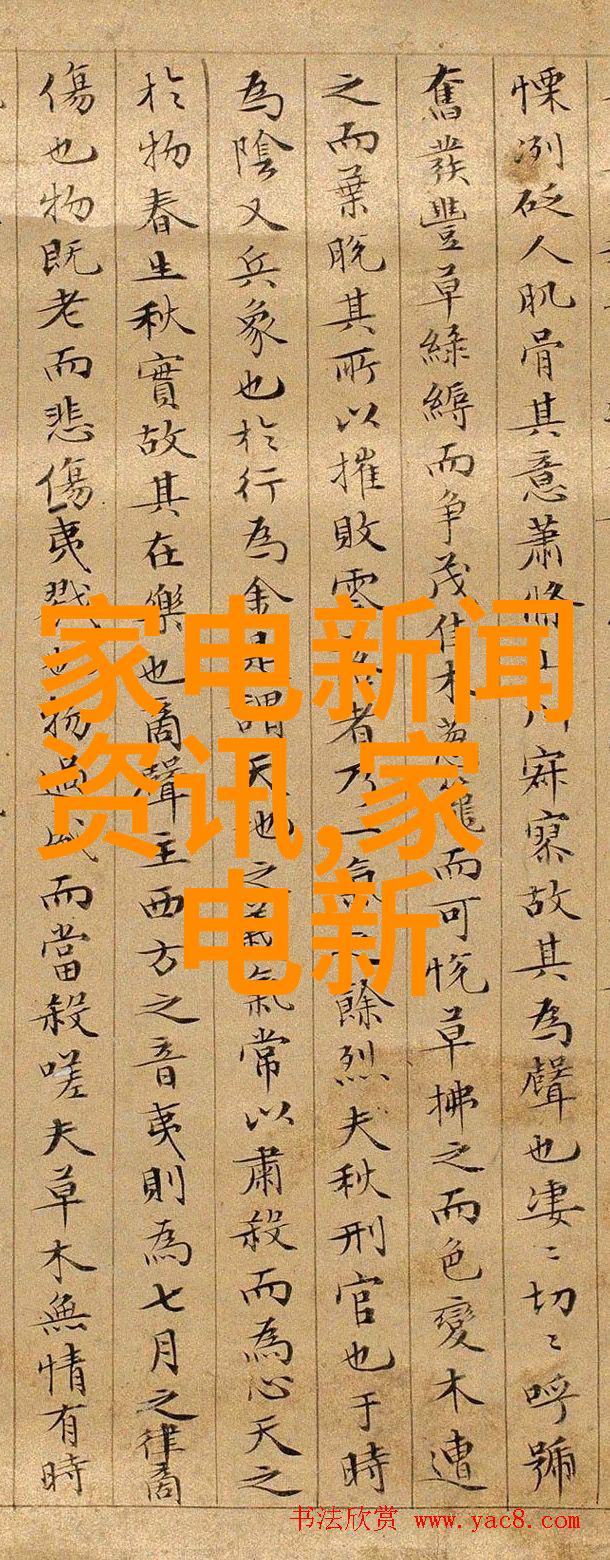 慄冽砭人肌骨其意蕭條山川寂寥故其為聲也凄〻切〻呼號
奮發豐草綠縟而争茂佳木葱蘢而可悅草拂之而色變木遭
之而葉脫其所以摧敗零落者乃一氣之餘烈夫秋刑官也于時
為陰又兵象也於行為金是謂天地之義氣常以肅殺而為心天之
於物春生秋實故其在樂也商聲主西方之音夷則為七月之律商
傷也物既老而悲傷夷戮也物過盛而當殺嗟夫草木無情有時
家电新闻
资讯,家
电新
书法欣赏 www.yac8.com